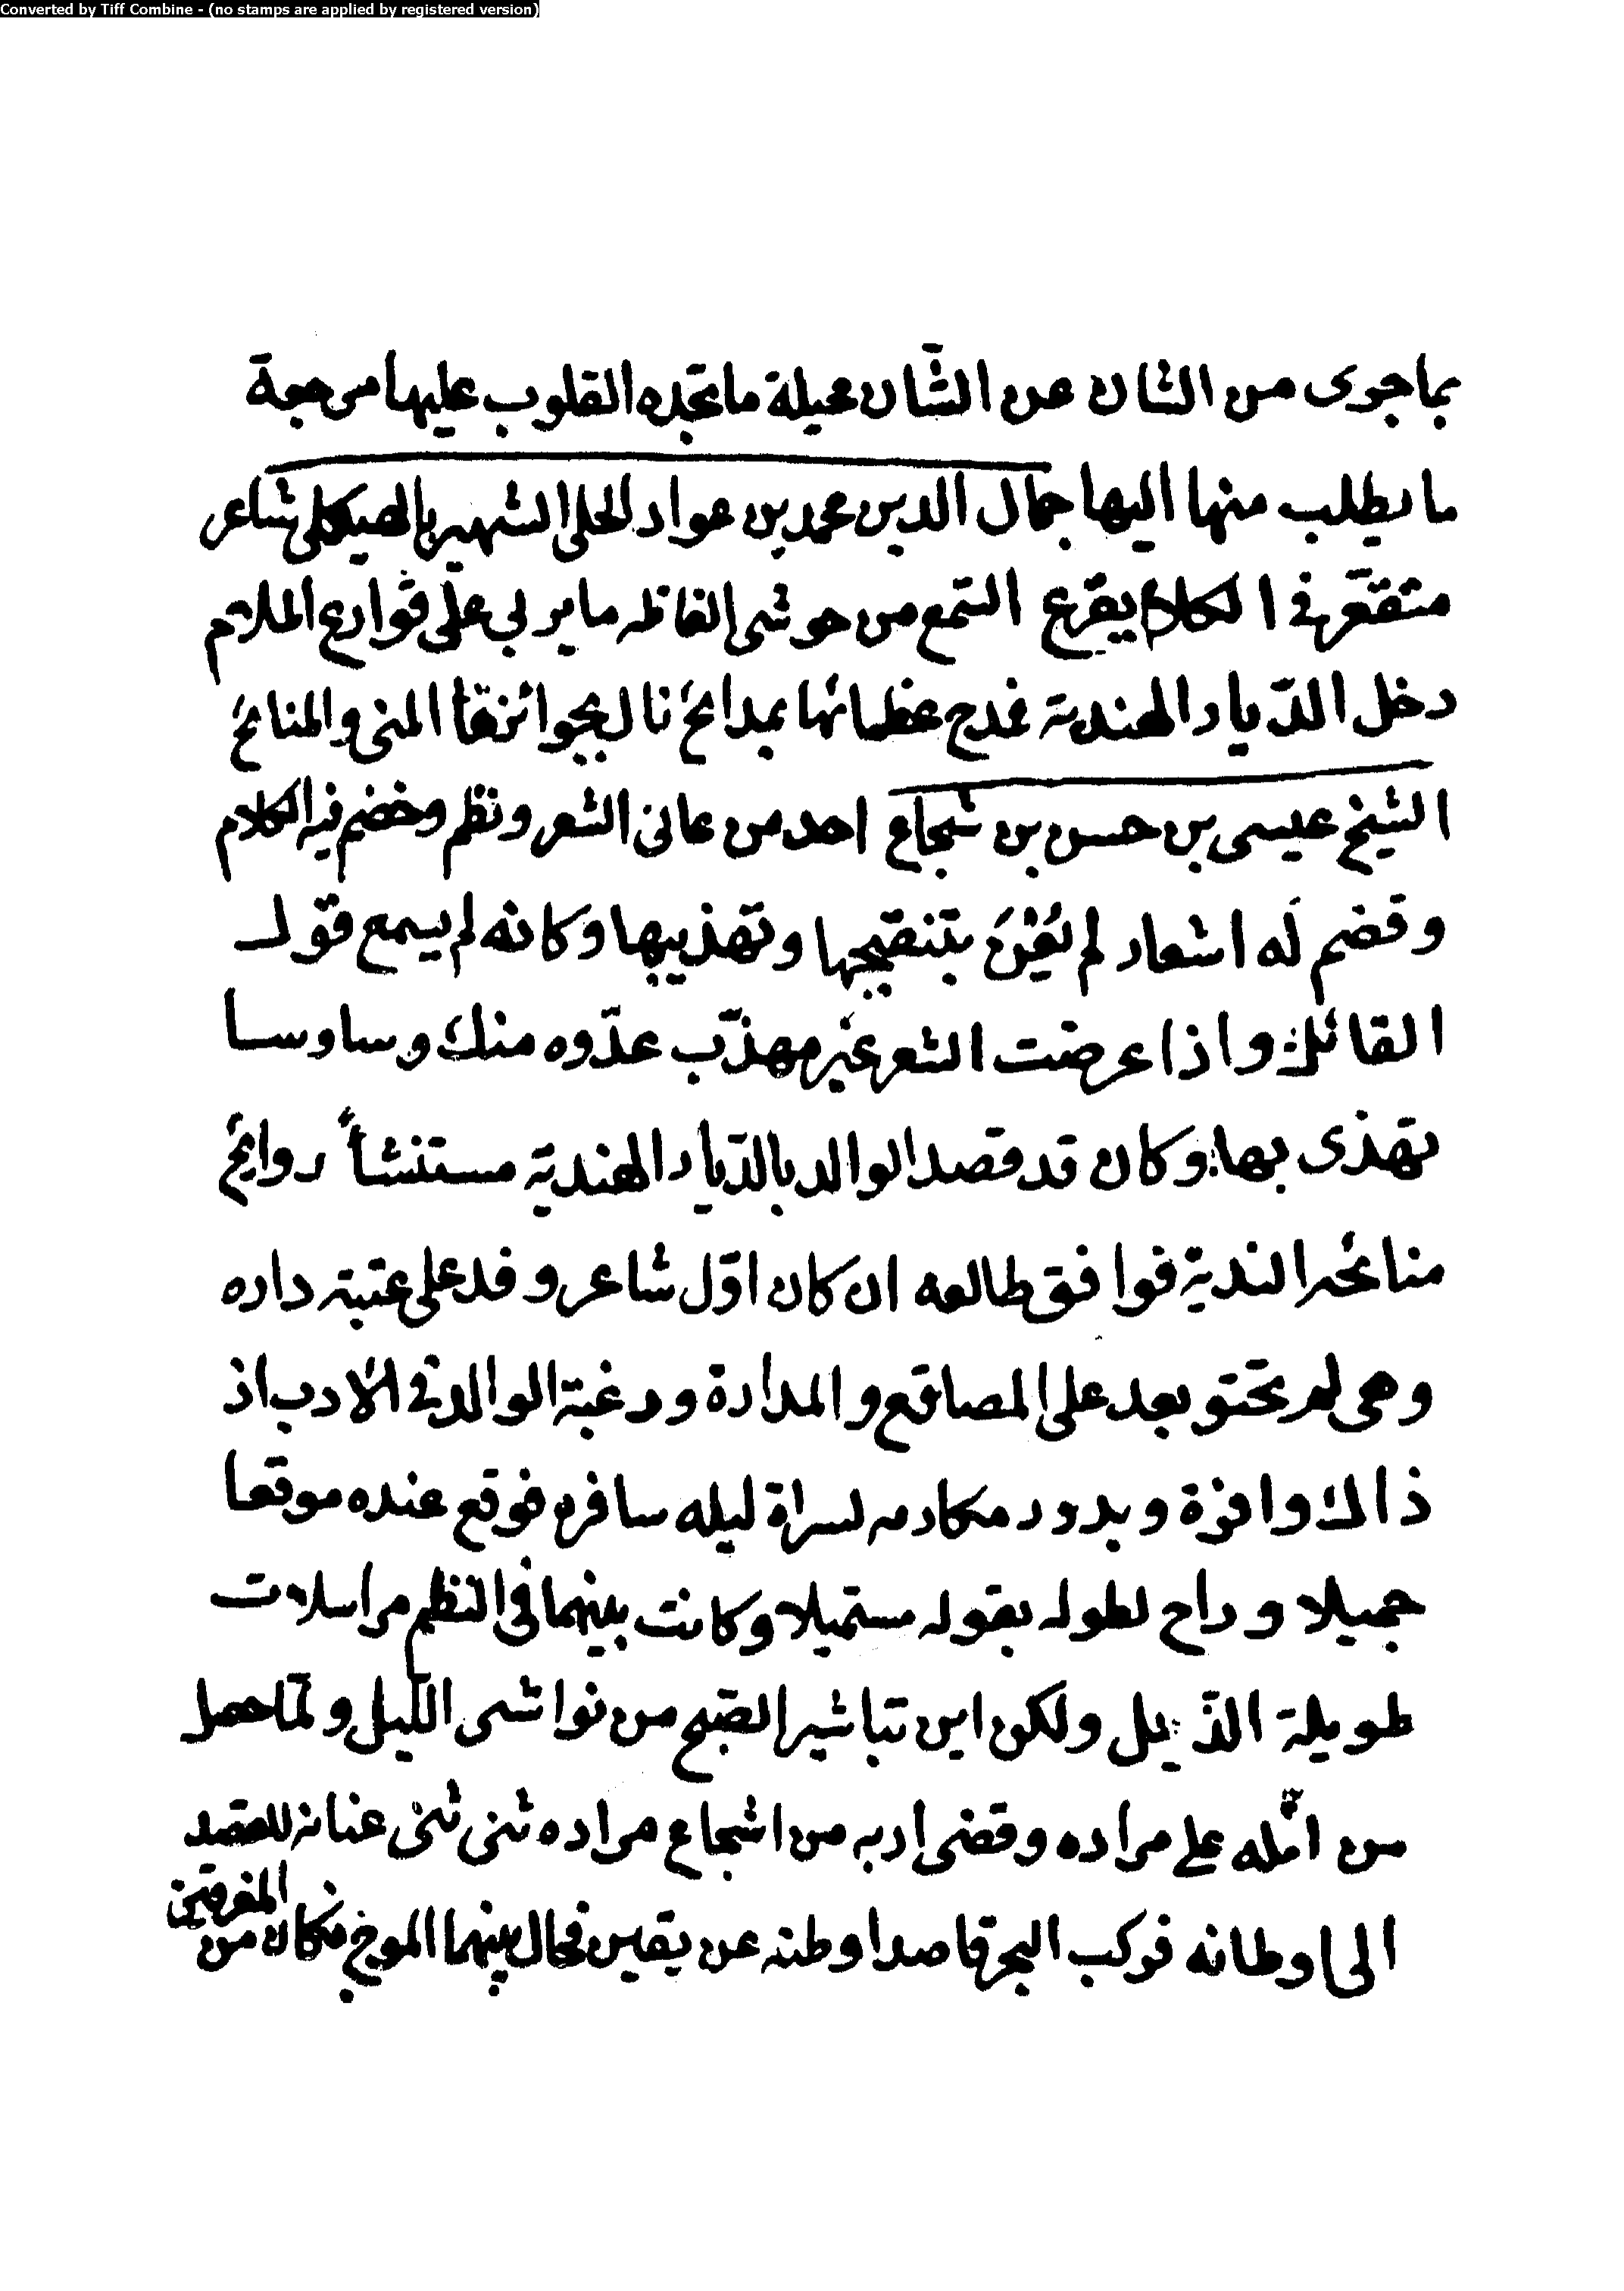 Converted by Tiff Combine - (no stamps are applied by registered version)
بما جرى من الشان عن الشّان محيلة ما تجده القلوب عليها من حجة
ما يطلب منها اليها جمال الدين محمد بن عواد الحلى الشهير بالهيكلى شاعر
متقعّر فى الكلام يقرع السّمع من حوشى الفاظه ما يربي على قوارع الملام
دخل الدّيار الهندية فمدح عظمائها بمدائح نال بجوائزها المنى والمنائح
الشيخ عيسى بن حسن بن شجاع احد من عانى الشعر ونظم وخضم فيه الكلام
وقضم له اشعار لم يُعْنَ بتنقيحها وتهذيبها وكانه لم يسمع قول
القائل واذا عرضت الشعر غير مهذّب عدّوه منك وساوسا
تهذى بها وكان قد قصد الوالد بالدّيار الهنديّة مستنشأً روايح
منائحه النديّة فوافق طالعه ان كان اوّل شاعر وفد على عتبة داره
وهى لم تحتو بعد على المصاقع والمدارة ورغبة الوالد فى الادب اذ
ذاك وافرة وبدور مكارمه لسراة ليله سافره فوقع عنده موقعا
جميلا وراح لطوله بقوله مستميلا وكانت بينهما فى النظم مراسلات
طويلة الذّيل ولكن اين تباشير الصّبح من نواشى اللّيل ولمّا حصل
من امّله على مراده وقضى اربه من اشجاع مراده ثنى ثنى عنانه للقصد
الى اوطانه فركب البحر قاصدا وطنه عن يقين فحال بينهما الموج فكان من
المغرقين